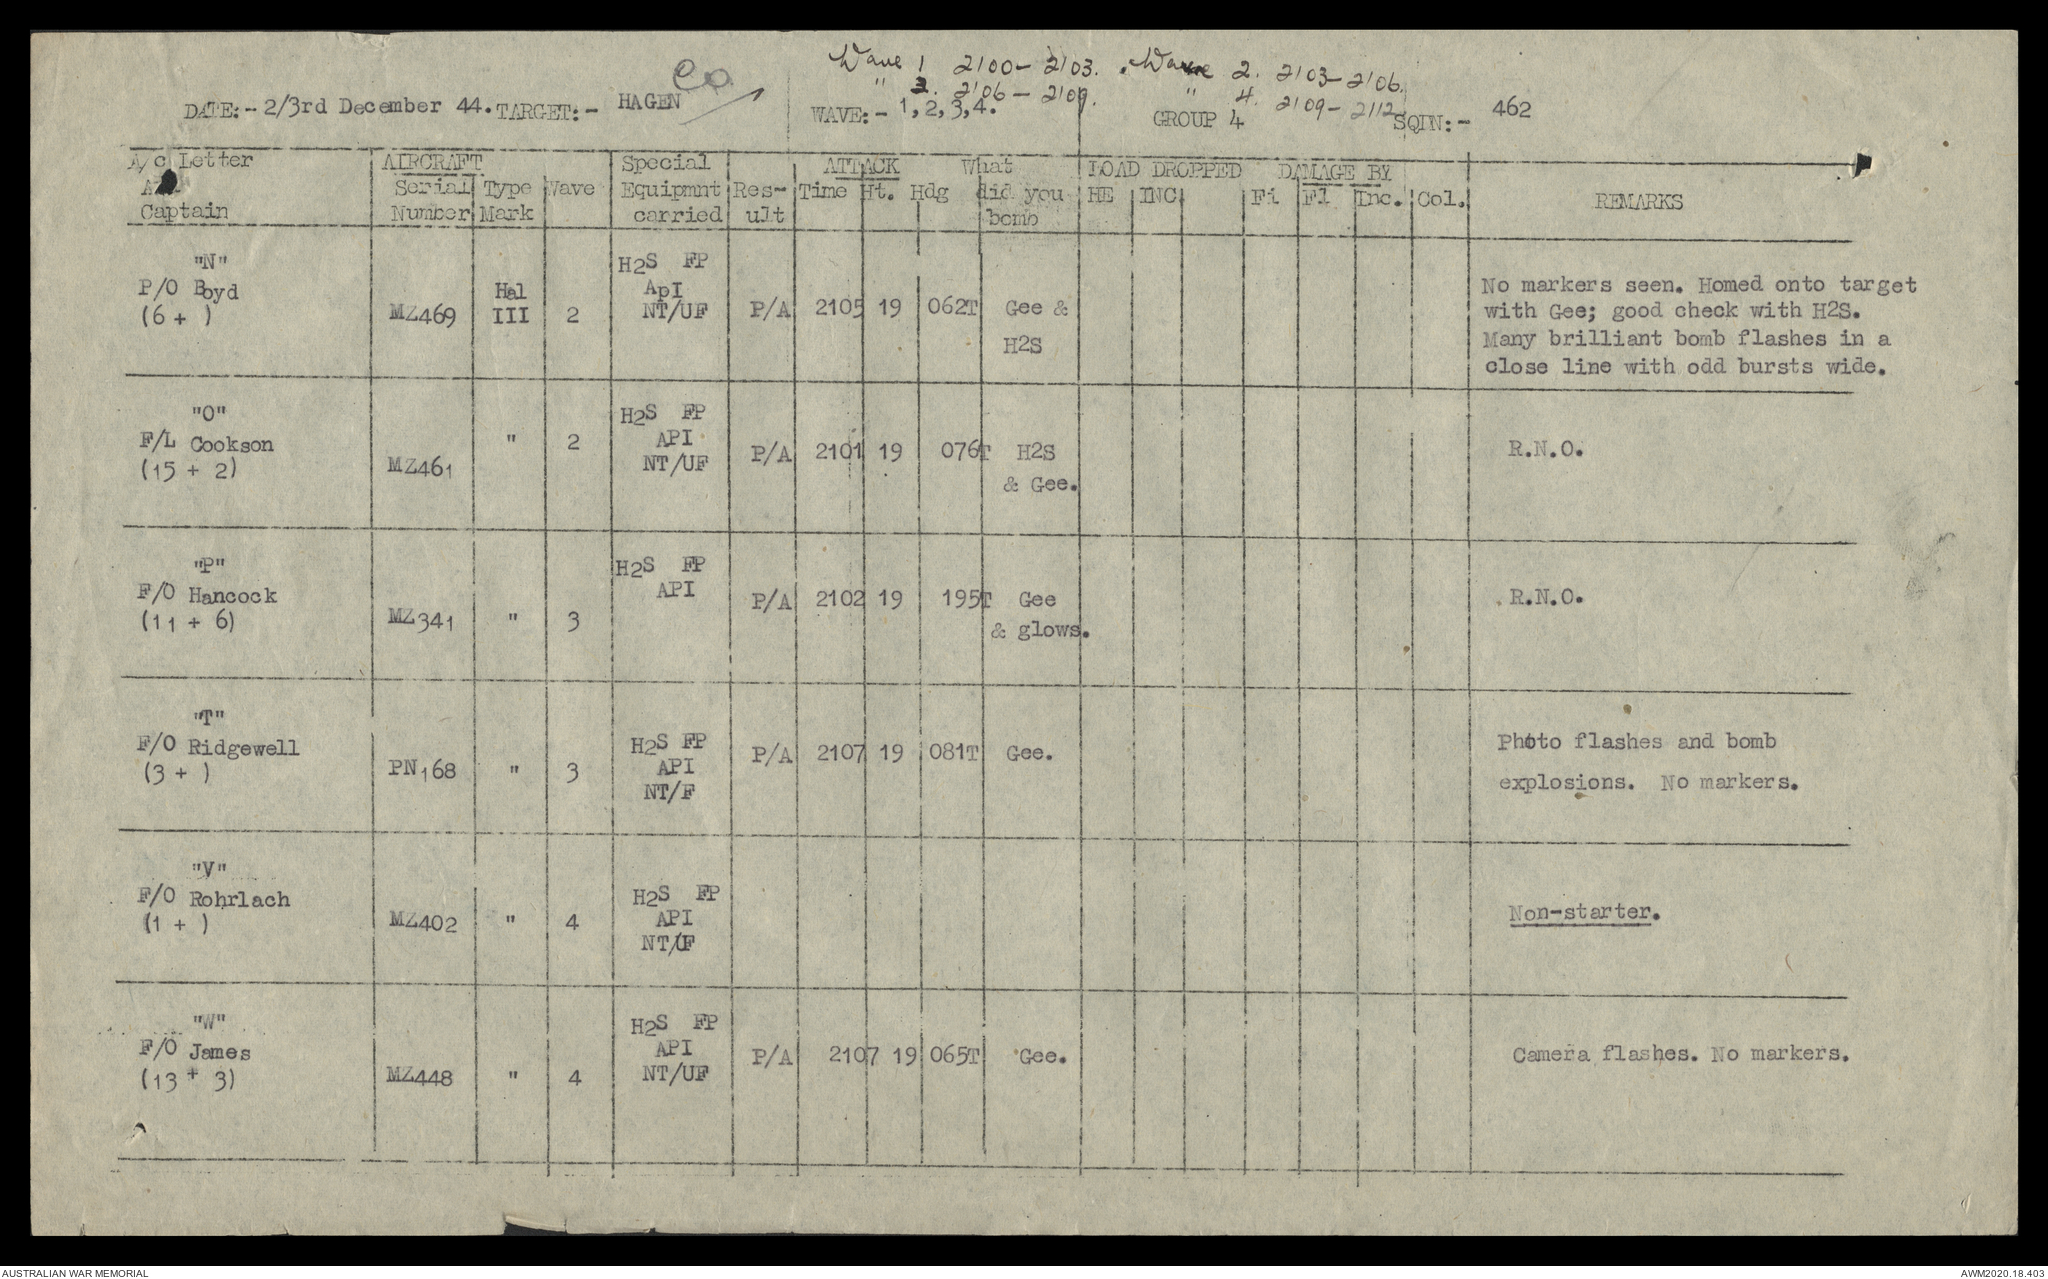 Wave 1 2100 - 2103. Wave 2. 2103 - 2106.
" 3. 2106 - 2109. " 4. 2109 - 2112
DATE:- 2/3rd December 44. TARGET:- HAGEN WAVE:- 1,2,3,4. GROUP 4 SQDN:- 462
A/c Letter AIRCRAFT Special ATTACK What LOAD DROPPED DAMAGE BY
Serial Type Wave Equipmnt Res- Time Ht. Hdg did you HE INC Fi Fl Inc. Col. REMARKS
Captain Number Mark carried ult bomb
"N" H2S FP
P/O Boyd Hal ApI No markers seen. Homed onto target
(6 + ) MZ469 III 2 NT/UF P/A 2105 19 062T Gee & with Gee; good check with H2S.
H2S Many brilliant bomb flashes in a
close line with odd bursts wide.
"O" H2S FP
F/L Cookson " 2 API
(15 + 2) MZ461 NT/UF P/A 2101 19 076T H2S R.N.O.
& Gee.
"P" H2S FP
F/O Hancock API P/A 2102 19 195T Gee R.N.O.
(11 + 6) MZ341 " 3 & glows.
"T"
F/O Ridgewell H2S FP P/A 2107 19 081T Gee. Photo flashes and bomb
(3 + ) PN168 " 3 API explosions. No markers.
NT/F
"V"
F/O Rohrlach H2S FP
(1 + ) MZ402 " 4 API Non-starter.
NT/F
"W" H2S FP
F/O James API P/A 2107 19 065T Gee. Camera flashes. No markers.
(13 + 3) MZ448 " 4 NT/UF
AUSTRALIAN WAR MEMORIAL AWM2020.18.403